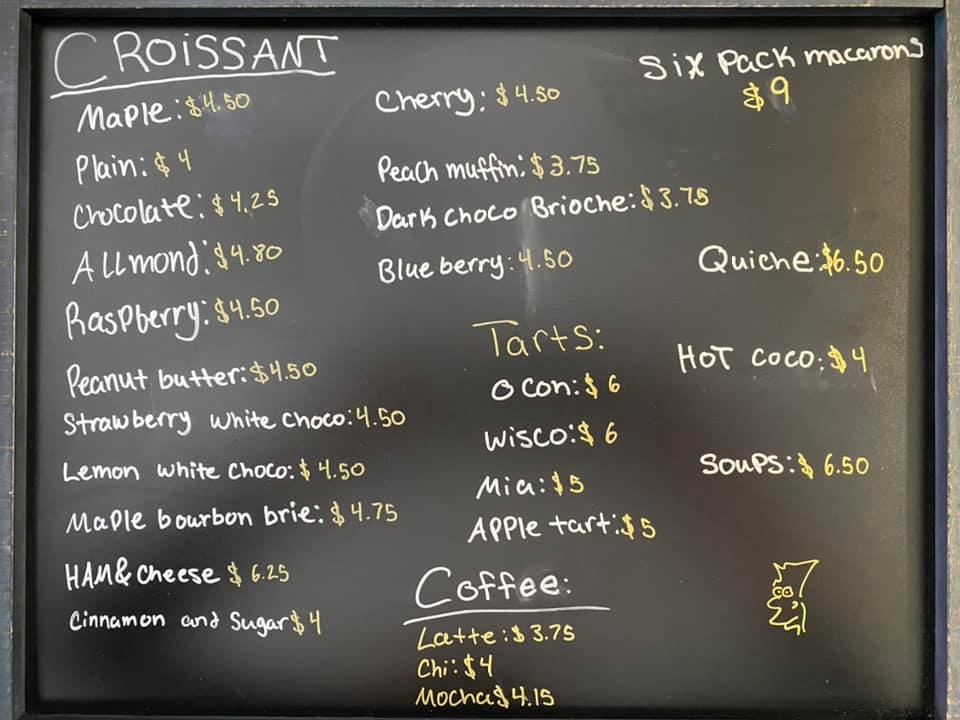 CROISSANT
Maple: $4.50
Plain: $4
Chocolate: $4.25
Allmond: $4.80
Raspberry: $4.50
Peanut butter: $4.50
Strawberry White Choco: 4.50
Lemon White Choco: $4.50
Maple bourbon brie: $4.75
HAM & Cheese $6.25
Cinnamon and Sugar $4
Cherry: $4.50
Peach muffin: $3.75
Dark choco Brioche: $3.75
Blueberry: 4.50
Tarts:
O Con: $6
Wisco: $6
Mia: $5
Apple tart: $5
Coffee:
Latte: $3.75
Chi: $4
Mocha $4.15
Six Pack macarons
$9
Quiche: $6.50
HOT COCO: $4
Soups: $6.50